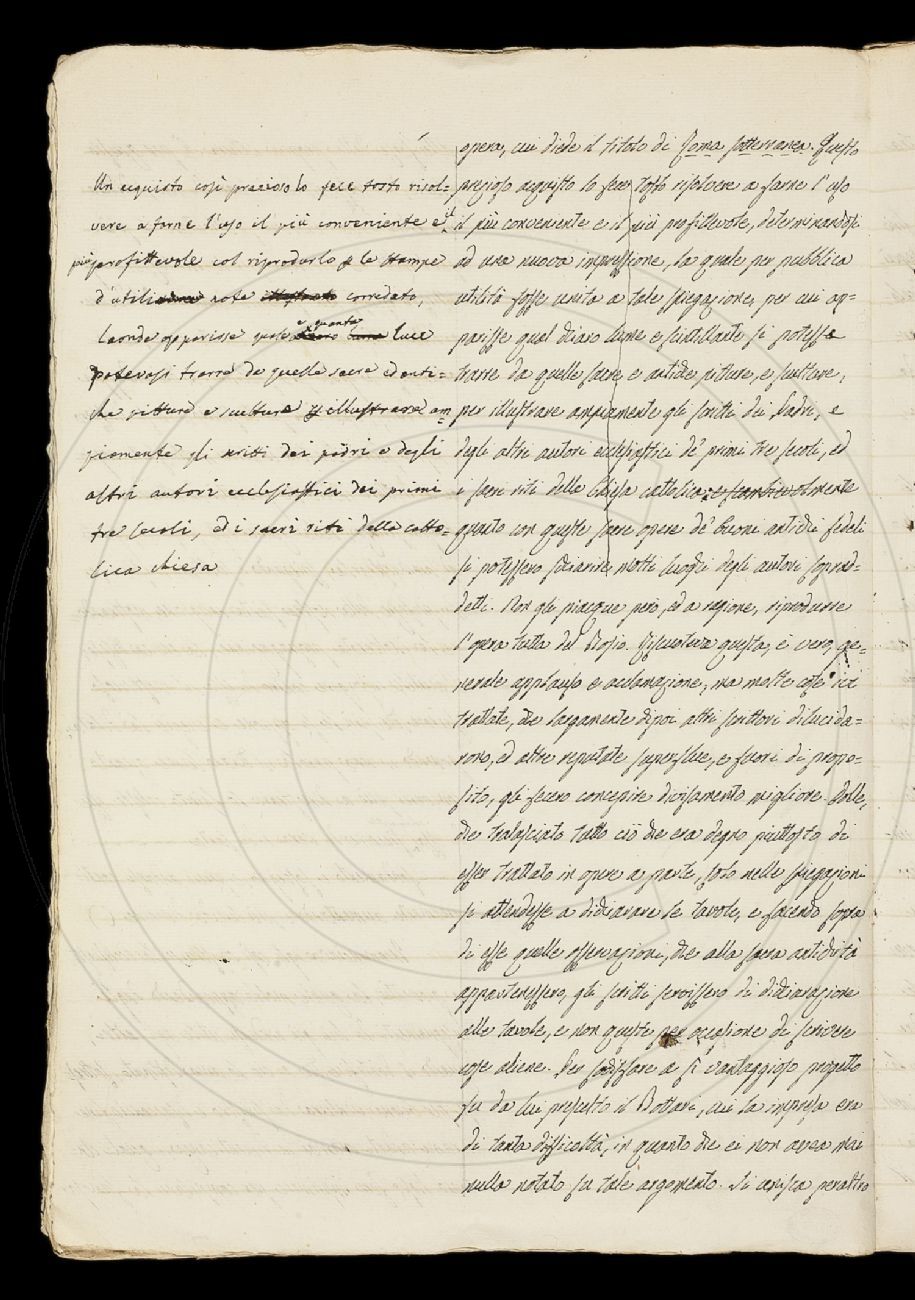 Un acquisto così prezioso lo fece tosto risol=
vere a farne l'uso il più conveniente e il
più profittevole col riprodurlo p le stampe
d'utili note corredato,
laonde apparisse quale e quanta luce
potevasi trarre da quelle sacre ed anti=
che pitture e sculture p illustrare am=
piamente gli scritti dei padri e degli
altri autori ecclesiastici dei primi
tre secoli, ed i sacri riti della catto=
lica chiesa
opera, cui diede il titolo di Roma sotterranea. Questo
prezioso acquisto lo fece tosto risolvere a farne l'uso
il più conveniente e il più profittevole, determinandosi
ad una nuova impressione, la quale per pubblica
utilità fosse unita a tale spiegazione, per cui ap=
parisse qual chiaro lume e scintillante si potesse
trarre da quelle sacre, e antiche pitture, e sculture,
per illustrare ampiamente gli scritti dei Padri, e
degli altri autori ecclesiastici de' primi tre secoli, ed
i sacri riti della Chiesa cattolica, e scambievolmente
quanto con queste sacre opere de' buoni antichi fedeli
si potessero schiarire molti luoghi degli autori soprad=
detti. Non gli piacque però, ed a ragione, riprodurre
l'opera tutta del Bosio. Riscuoteva questa, è vero, ge=
nerale applauso e acclamazione, ma molte cose ivi
trattate, che largamente dipoi altri scrittori dilucida=
rono, ed altre reputate superflue, e fuori di propo=
sito, gli fecero concepire divisamento migliore. Volle,
che tralasciato tutto ciò che era degno piuttosto di
esser trattato in opere a parte, solo nelle spiegazioni
si attendesse a dichiarare le tavole, e facendo sopra
di esse quelle osservazioni, che alla sacra antichità
appartenessero, gli scritti servissero di dichiarazione
alle tavole, e non queste per occasione di scrivere
cose aliene. Per sodisfare a sì vantaggioso progetto
fu da lui prescelto il Bottari, cui la impresa era
di tanta difficoltà, in quanto che ei non avea mai
nulla notato su tale argomento. Si arrisca peraltro